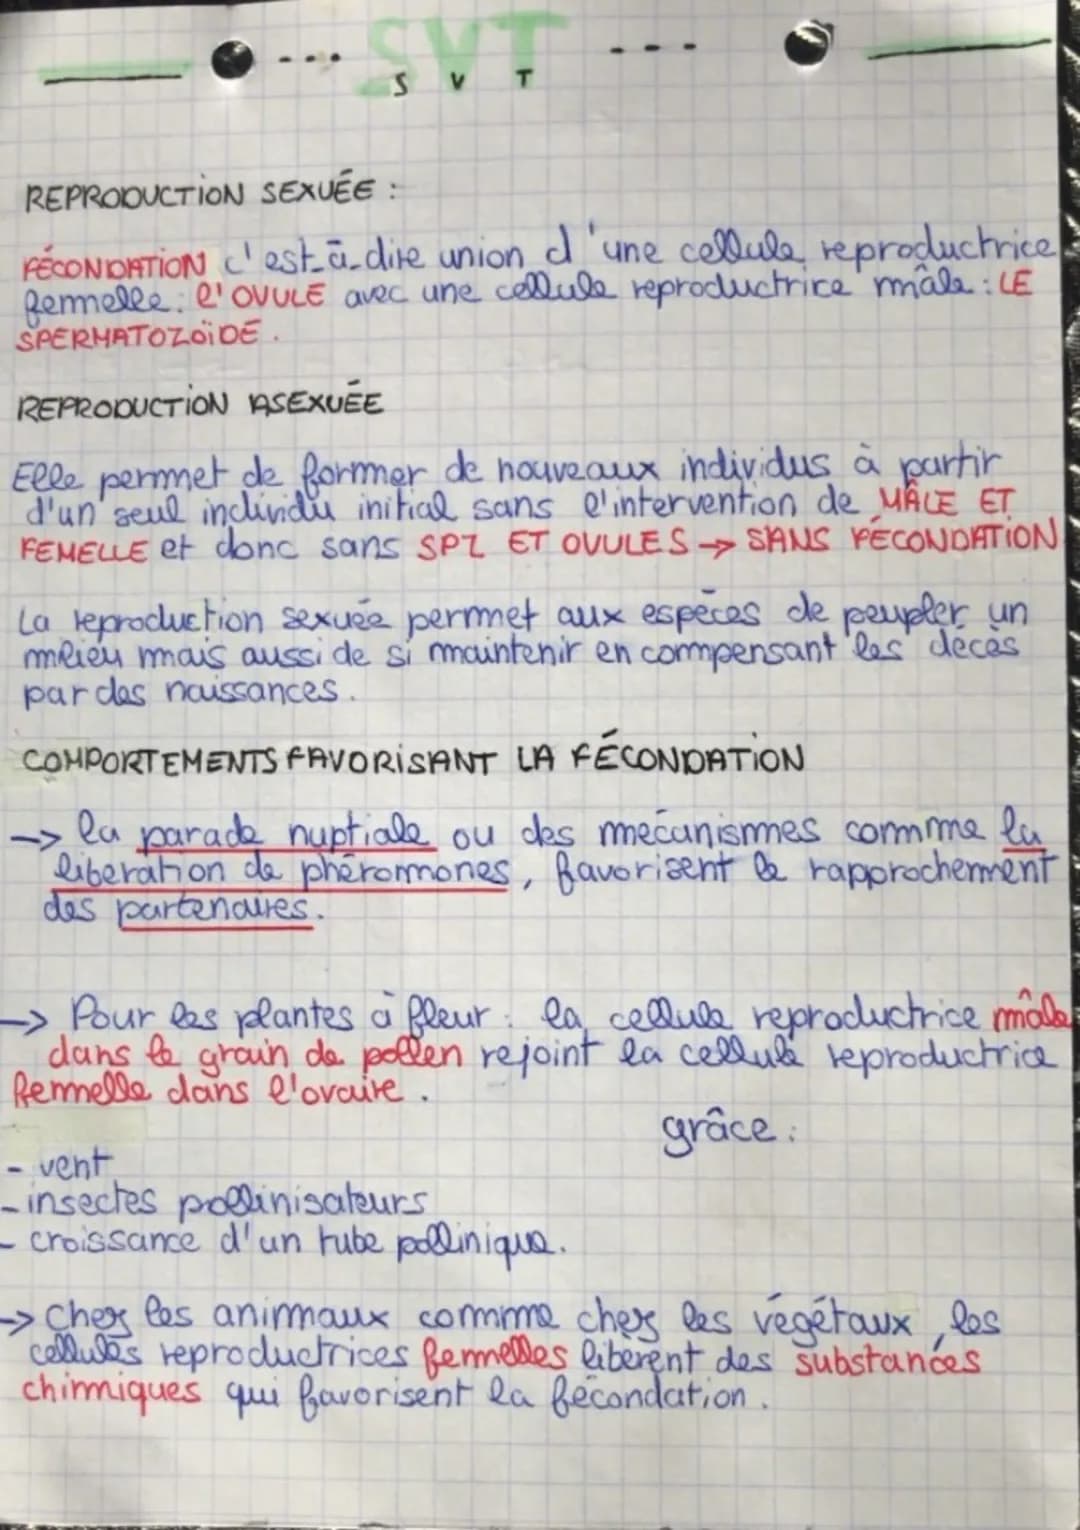 SVT
S V T
REPRODUCTION SEXUÉE :
FÉCONDATION c'est-à-dire union d'une cellule reproductrice
femelle : l'OVULE avec une cellule reproductrice mâle : LE
SPERMATOZOÏDE.
REPRODUCTION ASEXUÉE
Elle permet de former de nouveaux individus à partir
d'un seul individu initial sans l'intervention de MÂLE ET
FEMELLE et donc sans SPZ ET OVULES → SANS FÉCONDATION
La reproduction sexuée permet aux espèces de peupler un
milieu mais aussi de si maintenir en compensant les décès
par des naissances.
COMPORTEMENTS FAVORISANT LA FÉCONDATION
→ la parade nuptiale ou des mécanismes comme la
libération de phéromones, favorisent le rapprochement
des partenaires.
→ Pour les plantes à fleur : la cellule reproductrice mâle
dans le grain de pollen rejoint la cellule reproductrice
femelle dans l'ovaire.
grâce :
- vent
- insectes pollinisateurs
- croissance d'un tube pollinique.
→ Chez les animaux comme chez les végétaux, les
cellules reproductrices femelles libèrent des substances
chimiques qui favorisent la fécondation.